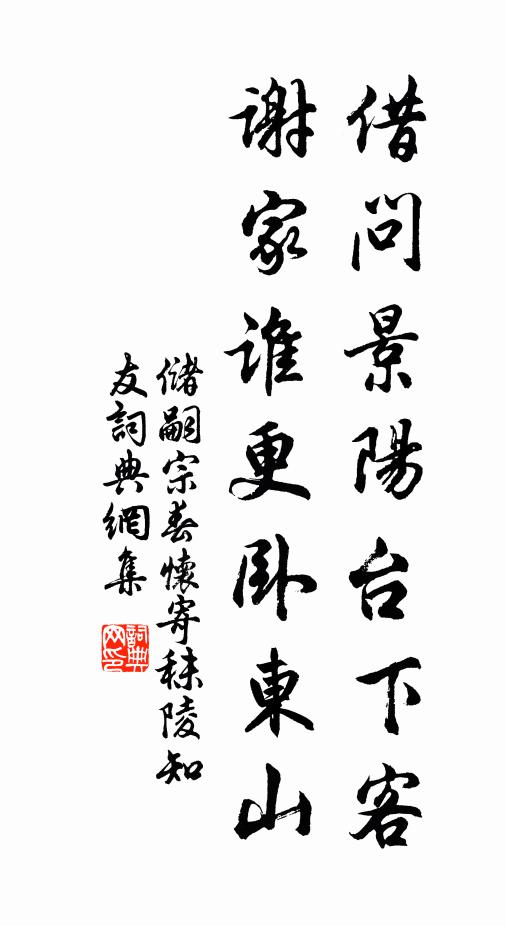 借問景陽台下客
謝家誰更臥東山
儲嗣宗春懷寄秣陵知
友詞典網集
詞典
网印